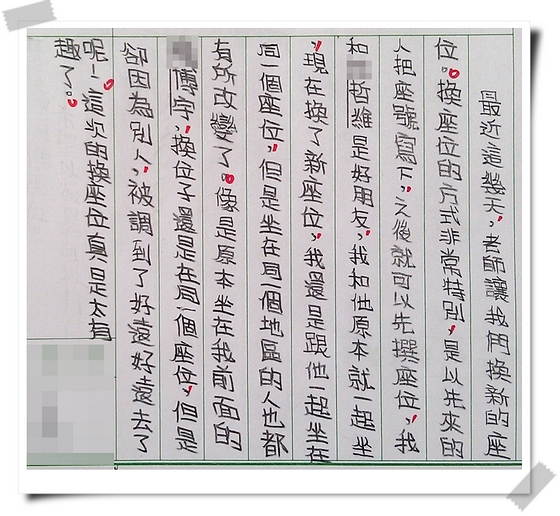 最近這幾天，老師讓我們換新的座
位。換座位的方式非常特別，是以先來的
人把座號寫下，之後就可以先撰座位，我
和哲維是好朋友，我和他原本就一起坐
，現在換了新座位，我還是跟他一起坐在
同一個座位，但是坐在同一個地區的人也都
有所改變了。像是原本坐在我前面的
博宇，換位子還是在同一個座位，但是
卻因為別人，被調到了好遠好遠去了
呢！這次的換座位真是太有
趣了。